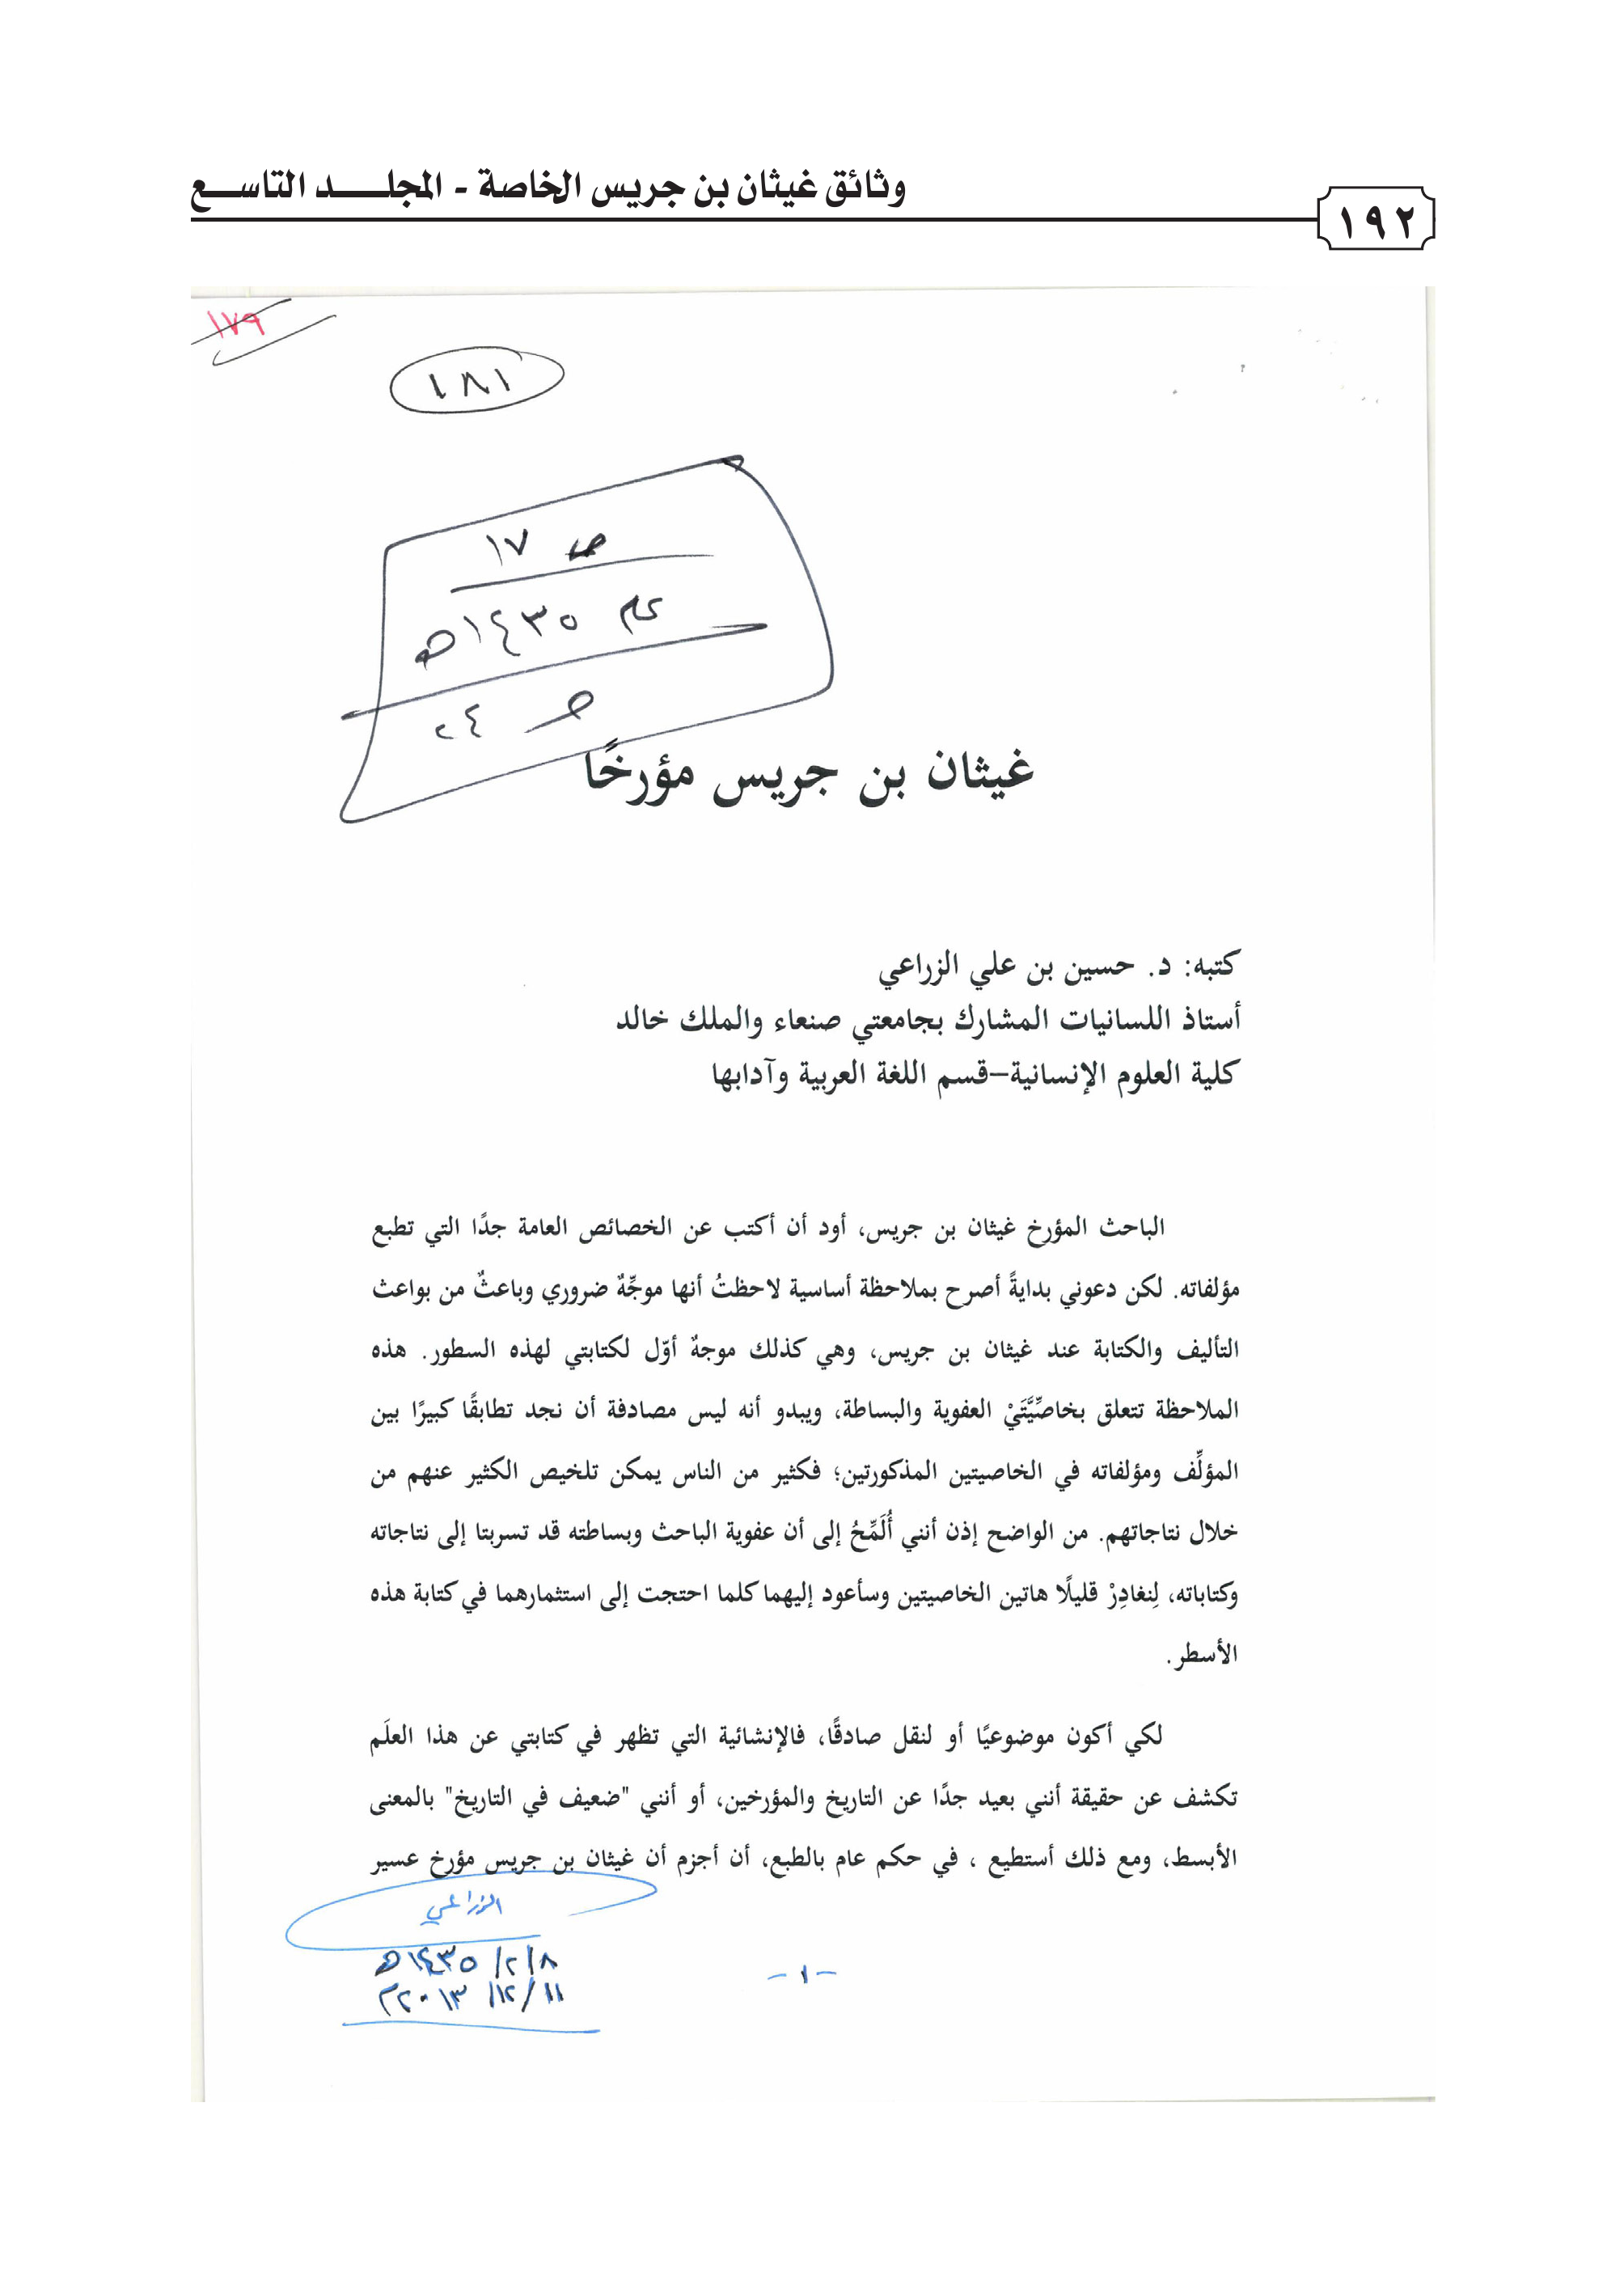 وثائق غيثان بن جريس الخاصة - المجلـــــد التاســـع
١٩٢
١٧٩
١٨١
ص ١٧
عام ١٤٣٥هـ
ص ٢٤
غيثان بن جريس مؤرخًا
كتبه: د. حسين بن علي الزراعي
أستاذ اللسانيات المشارك بجامعتي صنعاء والملك خالد
كلية العلوم الإنسانية–قسم اللغة العربية وآدابها
الباحث المؤرخ غيثان بن جريس، أود أن أكتب عن الخصائص العامة جدًا التي تطبع
مؤلفاته. لكن دعوني بدايةً أصرح بملاحظة أساسية لاحظتُ أنها موجِّهٌ ضروري وباعثٌ من بواعث
التأليف والكتابة عند غيثان بن جريس، وهي كذلك موجهٌ أوّل لكتابتي لهذه السطور. هذه
الملاحظة تتعلق بخاصِّيَّتَيْ العفوية والبساطة، ويبدو أنه ليس مصادفة أن نجد تطابقًا كبيرًا بين
المؤلِّف ومؤلفاته في الخاصيتين المذكورتين؛ فكثير من الناس يمكن تلخيص الكثير عنهم من
خلال نتاجاتهم. من الواضح إذن أنني أُلَمِّحُ إلى أن عفوية الباحث وبساطته قد تسربتا إلى نتاجاته
وكتاباته، لِنغادِرْ قليلًا هاتين الخاصيتين وسأعود إليهما كلما احتجت إلى استثمارهما في كتابة هذه
الأسطر.
لكي أكون موضوعيًا أو لنقل صادقًا، فالإنشائية التي تظهر في كتابتي عن هذا العلَم
تكشف عن حقيقة أنني بعيد جدًا عن التاريخ والمؤرخين، أو أنني "ضعيف في التاريخ" بالمعنى
الأبسط، ومع ذلك أستطيع ، في حكم عام بالطبع، أن أجزم أن غيثان بن جريس مؤرخ عسير
الزراعي
٨/٢/١٤٣٥هـ
١١/١٢/٢٠١٣م
-١-